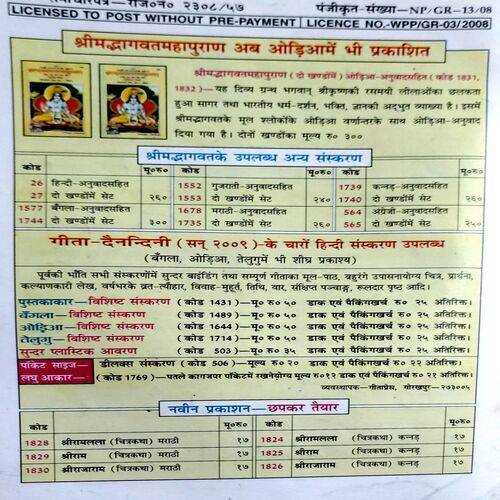 समाचारपत्र—रजि०नं० २३०८/५७ पंजीकृत-संख्या—NP/GR-13/08
LICENSED TO POST WITHOUT PRE-PAYMENT LICENCE NO.-WPP/GR-03/2008
श्रीमद्भागवतमहापुराण अब ओड़िआमें भी प्रकाशित
श्रीमद्भागवतमहापुराण (दो खण्डोंमें) ओड़िआ-अनुवादसहित (कोड 1831,
1832)—यह दिव्य ग्रन्थ भगवान् श्रीकृष्णकी रसमयी लीलाओंका छलकता
हुआ सागर तथा भारतीय धर्म-दर्शन, भक्ति, ज्ञानकी अद्भुत व्याख्या है। इसमें
श्रीमद्भागवतके मूल श्लोकोंकि ओड़िआ वर्णान्तरके साथ ओड़िआ-अनुवाद
दिया गया है। दोनों खण्डोंका मूल्य रु० ३००
श्रीमद्भागवतके उपलब्ध अन्य संस्करण
कोड मू०रु० कोड मू०रु० कोड मू०रु०
26 हिन्दी-अनुवादसहित 1552 गुजराती-अनुवादसहित 1739 कन्नड़-अनुवादसहित
27 दो खण्डोंमें सेट २६० 1553 दो खण्डोंमें सेट २४० 1740 दो खण्डोंमें सेट २६०
1577 बँगला-अनुवादसहित 1678 मराठी-अनुवादसहित 564 अंग्रेजी-अनुवादसहित
1744 दो खण्डोंमें सेट ३०० 1735 दो खण्डोंमें सेट २६० 565 दो खण्डोंमें सेट २५०
गीता-दैनन्दिनी (सन् २००९)-के चारों हिन्दी संस्करण उपलब्ध
(बँगला, ओड़िआ, तेलुगुमें भी शीघ्र प्रकाश्य)
पूर्वकी भाँति सभी संस्करणोंमें सुन्दर बाइंडिंग तथा सम्पूर्ण गीताका मूल-पाठ, बहुरंगे उपासनायोग्य चित्र, प्रार्थना,
कल्याणकारी लेख, वर्षभरके व्रत-त्यौहार, विवाह-मुहूर्त, तिथि, वार, संक्षिप्त पञ्चाङ्ग, रूलदार पृष्ठ आदि।
पुस्तकाकार—विशिष्ट संस्करण (कोड 1431)—मू० रु० ५० डाक एवं पैकिंगखर्च रु० २५ अतिरिक्त।
बँगला—विशिष्ट संस्करण (कोड 1489)—मू० रु० ५० डाक एवं पैकिंगखर्च रु० २५ अतिरिक्त।
ओड़िआ—विशिष्ट संस्करण (कोड 1644)—मू० रु० ५० डाक एवं पैकिंगखर्च रु० २५ अतिरिक्त।
तेलुगु—विशिष्ट संस्करण (कोड 1714)—मू० रु० ५० डाक एवं पैकिंगखर्च रु० २५ अतिरिक्त।
सुन्दर प्लास्टिक आवरण (कोड 503)—मू० रु० ३५ डाक एवं पैकिंगखर्च रु० २५ अतिरिक्त।
पॉकेट साइज— डीलक्स संस्करण (कोड 506)—मूल्य रु० २० डाक एवं पैकिंगखर्च रु० २२ अतिरिक्त।
लघु आकार— (कोड 1769)—पतले कागजपर पॉकेटमें रखनेयोग्य मूल्य रु०१२ डाक एवं पैकिंगखर्च रु० २१ अतिरिक्त।
व्यवस्थापक—गीताप्रेस, गोरखपुर—२७३००५
नवीन प्रकाशन—छपकर तैयार
कोड मू०रु० कोड मू०रु०
1828 श्रीरामलला (चित्रकथा) मराठी १७ 1824 श्रीरामलला (चित्रकथा) कन्नड़ १७
1829 श्रीराम (चित्रकथा) मराठी १७ 1825 श्रीराम (चित्रकथा) कन्नड़ १७
1830 श्रीराजाराम (चित्रकथा) मराठी १७ 1826 श्रीराजाराम (चित्रकथा) कन्नड़ १७